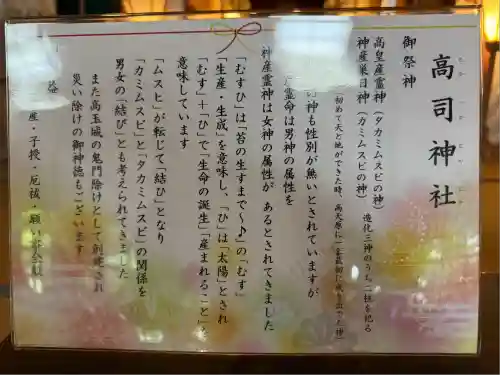 高司神社
御祭神
高皇産霊神(タカミムスビの神)
神産巣日神(カミムスビの神)
造化三神のうち二柱を祀る
(初めて天と地ができた時、高天原に一番最初に成り出でた神)
神も性別が無いとされていますが
霊命は男神の属性を
神産霊神は女神の属性が あるとされてきました
「むすひ」は「苔の生すまで〜♪」の「むす」
生産・生成」を意味し、「ひ」は「太陽」とされ
「むす」+「ひ」で「生命の誕生」「産まれること」を
意味しています
「ムスヒ」が転じて「結び」となり
「カミムスビ」と「タカミムスビ」の関係を
男女の「結び」とも考えられてきました
また高玉城の鬼門除けとして創建され
災い除けの御神徳もございます
産・子授・厄祓・願い